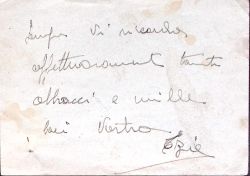 Sempre Vi ricordo
affettuosamente tanti
abbracci e mille
baci Vostro
Ezio